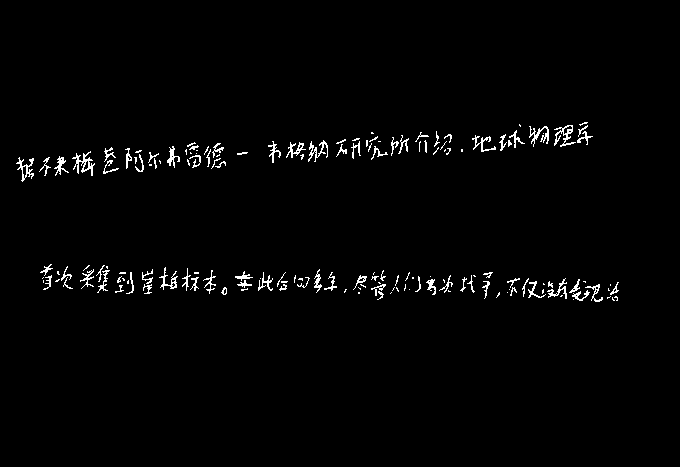 据不来梅港阿尔弗雷德-韦格纳研究所介绍,地球物理学
首次采集到崖柏标本。在此后的多年,尽管人们多次找寻,不仅没有发现活